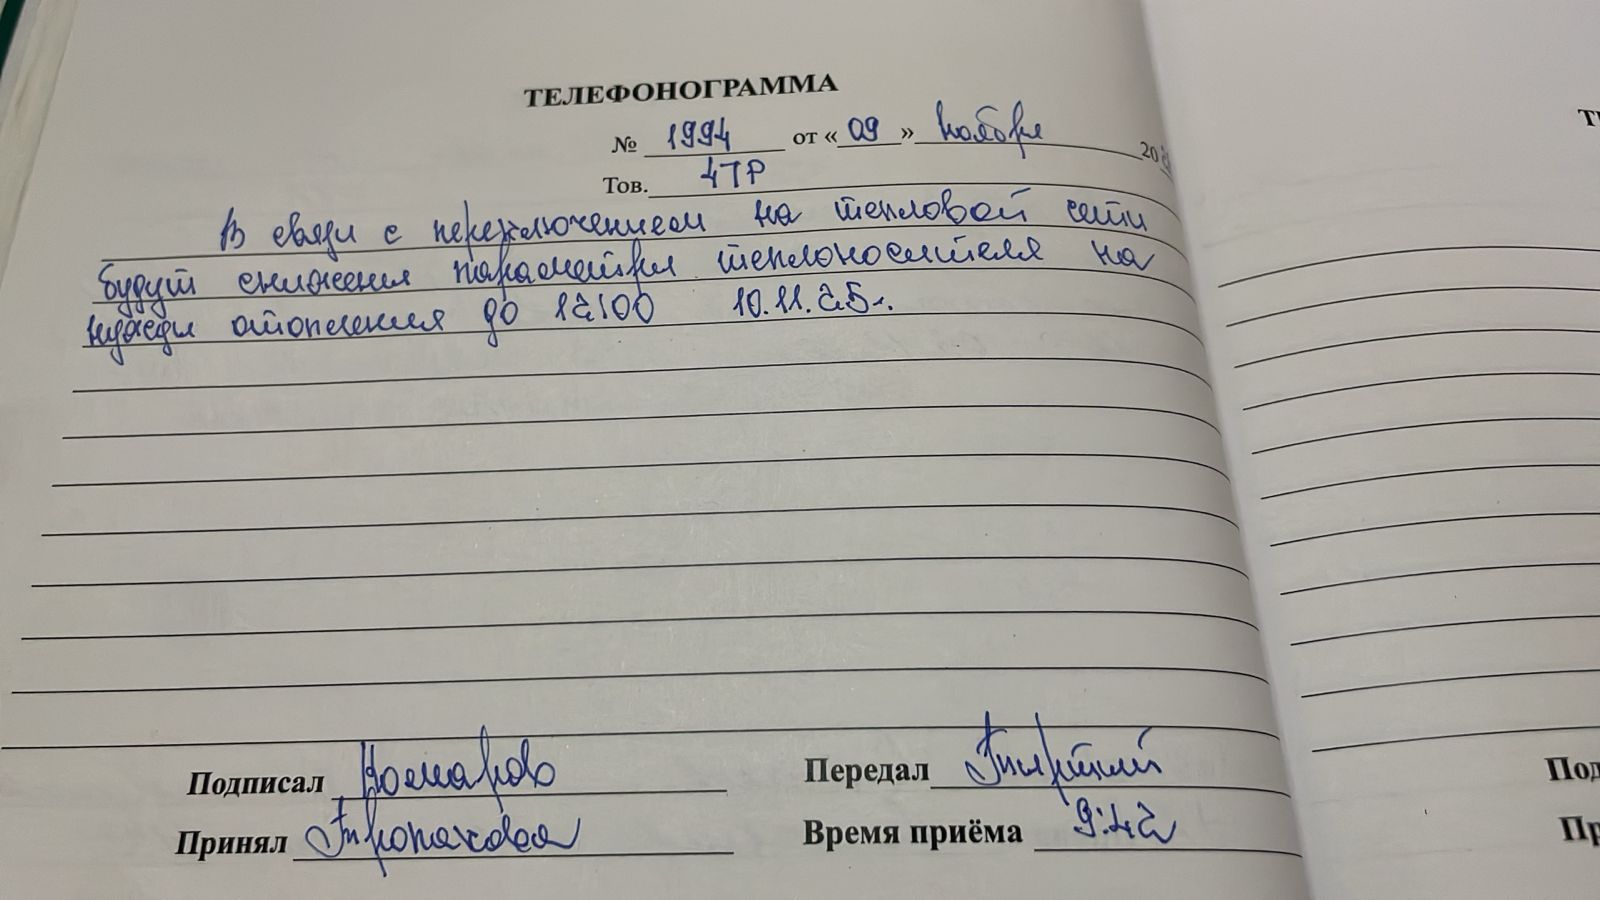 ТЕЛЕФОНОГРАММА
№ 1994 от «09» ноября 20
Тов. 4ТР
В связи с переключением на тепловой сети
будут снижены параметры теплоносителя на
нужды отопления до 12:00 10.11.25г.
Подписал Комаров
Передал
Принял
Время приёма 9:42